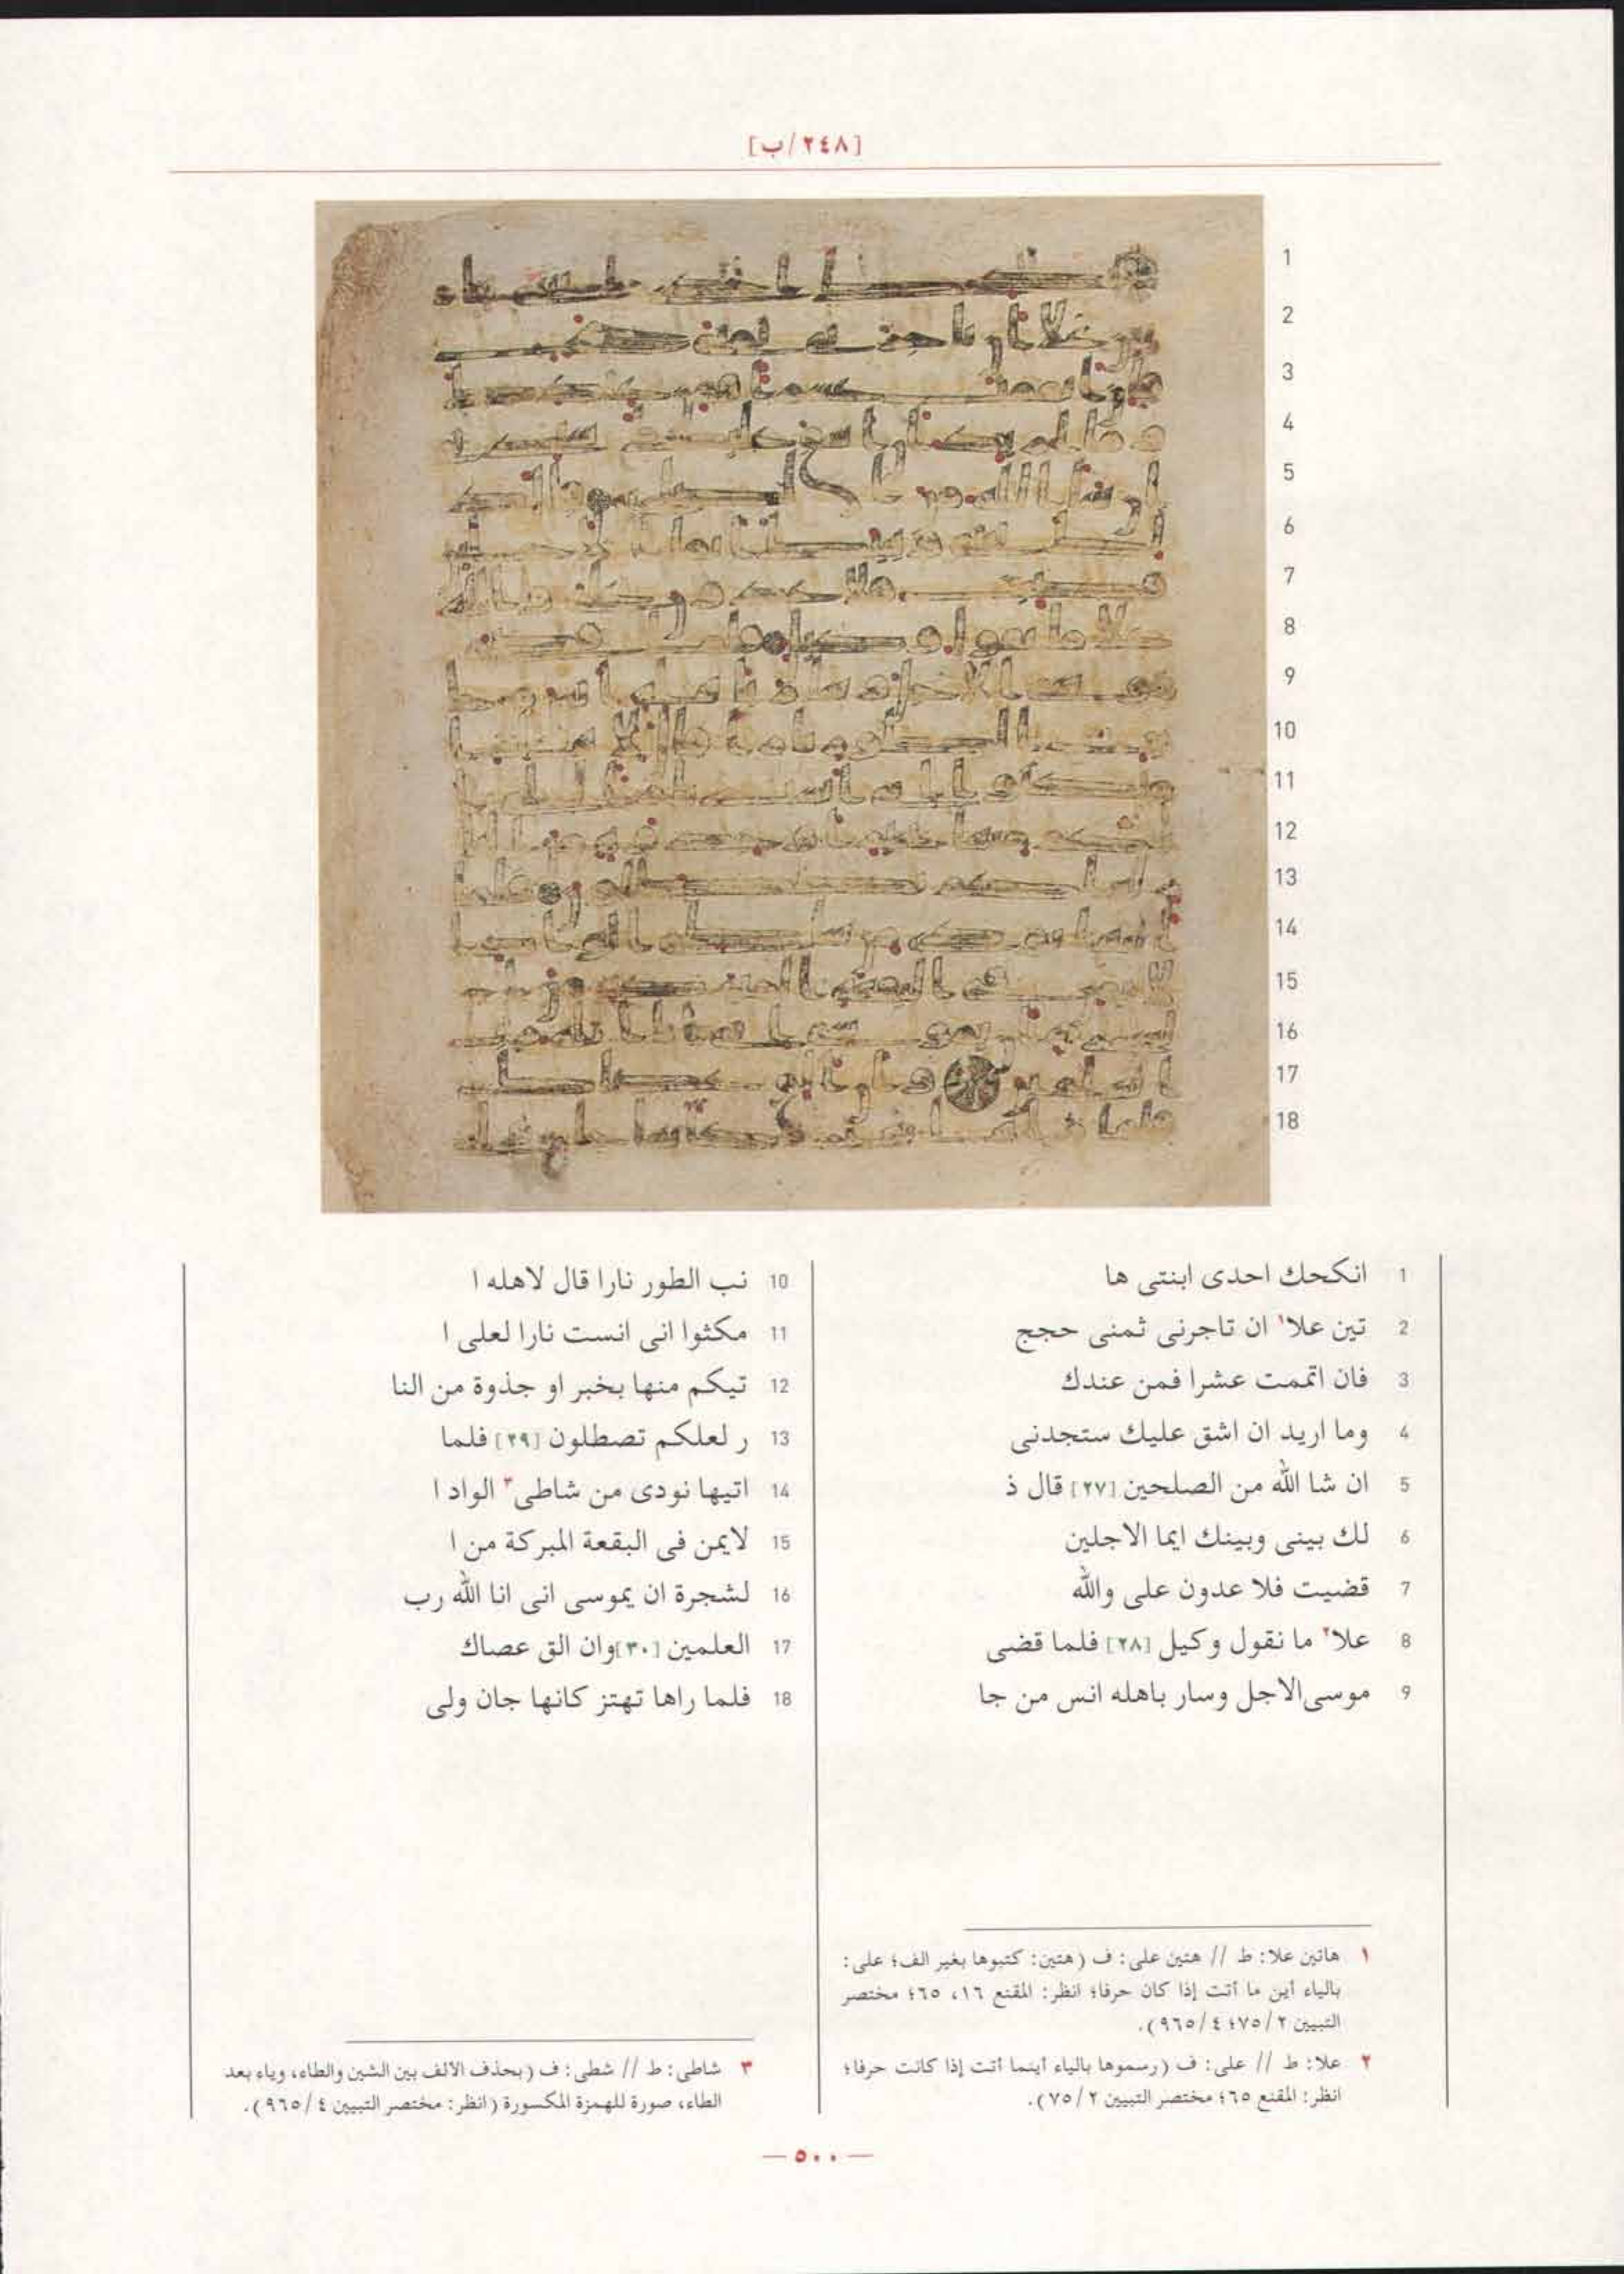 [٢٤٨/ب]
1 انكحك احدى ابنتى ها
2 تين علا١ ان تاجرنى ثمنى حجج
3 فان اتممت عشرا فمن عندك
4 وما اريد ان اشق عليك ستجدنى
5 ان شا الله من الصلحين [٢٧] قال ذ
6 لك بينى وبينك ايما الاجلين
7 قضيت فلا عدون على والله
8 علا٢ ما نقول وكيل [٢٨] فلما قضى
9 موسى الاجل وسار باهله انس من جا
10 نب الطور نارا قال لاهله ا
11 مكثوا انى انست نارا لعلى ا
12 تيكم منها بخبر او جذوة من النا
13 ر لعلكم تصطلون [٢٩] فلما
14 اتيها نودى من شاطى٣ الواد ا
15 لايمن فى البقعة المبركة من ا
16 لشجرة ان يموسى انى انا الله رب
17 العلمين [٣٠] وان الق عصاك
18 فلما راها تهتز كانها جان ولى
١ هاتين علا: ط // هتين على: ف (هتين: كتبوها بغير الف؛ على:
بالياء أين ما أتت إذا كان حرفا؛ انظر: المقنع ١٦، ٦٥؛ مختصر
التبيين ٢/٧٥؛ ٤/٩٦٥).
٢ علا: ط // على: ف (رسموها بالياء أينما أتت إذا كانت حرفا؛
انظر: المقنع ٦٥؛ مختصر التبيين ٢/٧٥).
٣ شاطى: ط // شطى: ف (بحذف الالف بين الشين والطاء، وياء بعد
الطاء، صورة للهمزة المكسورة (انظر: مختصر التبيين ٤/٩٦٥).
— ٥٠٠ —